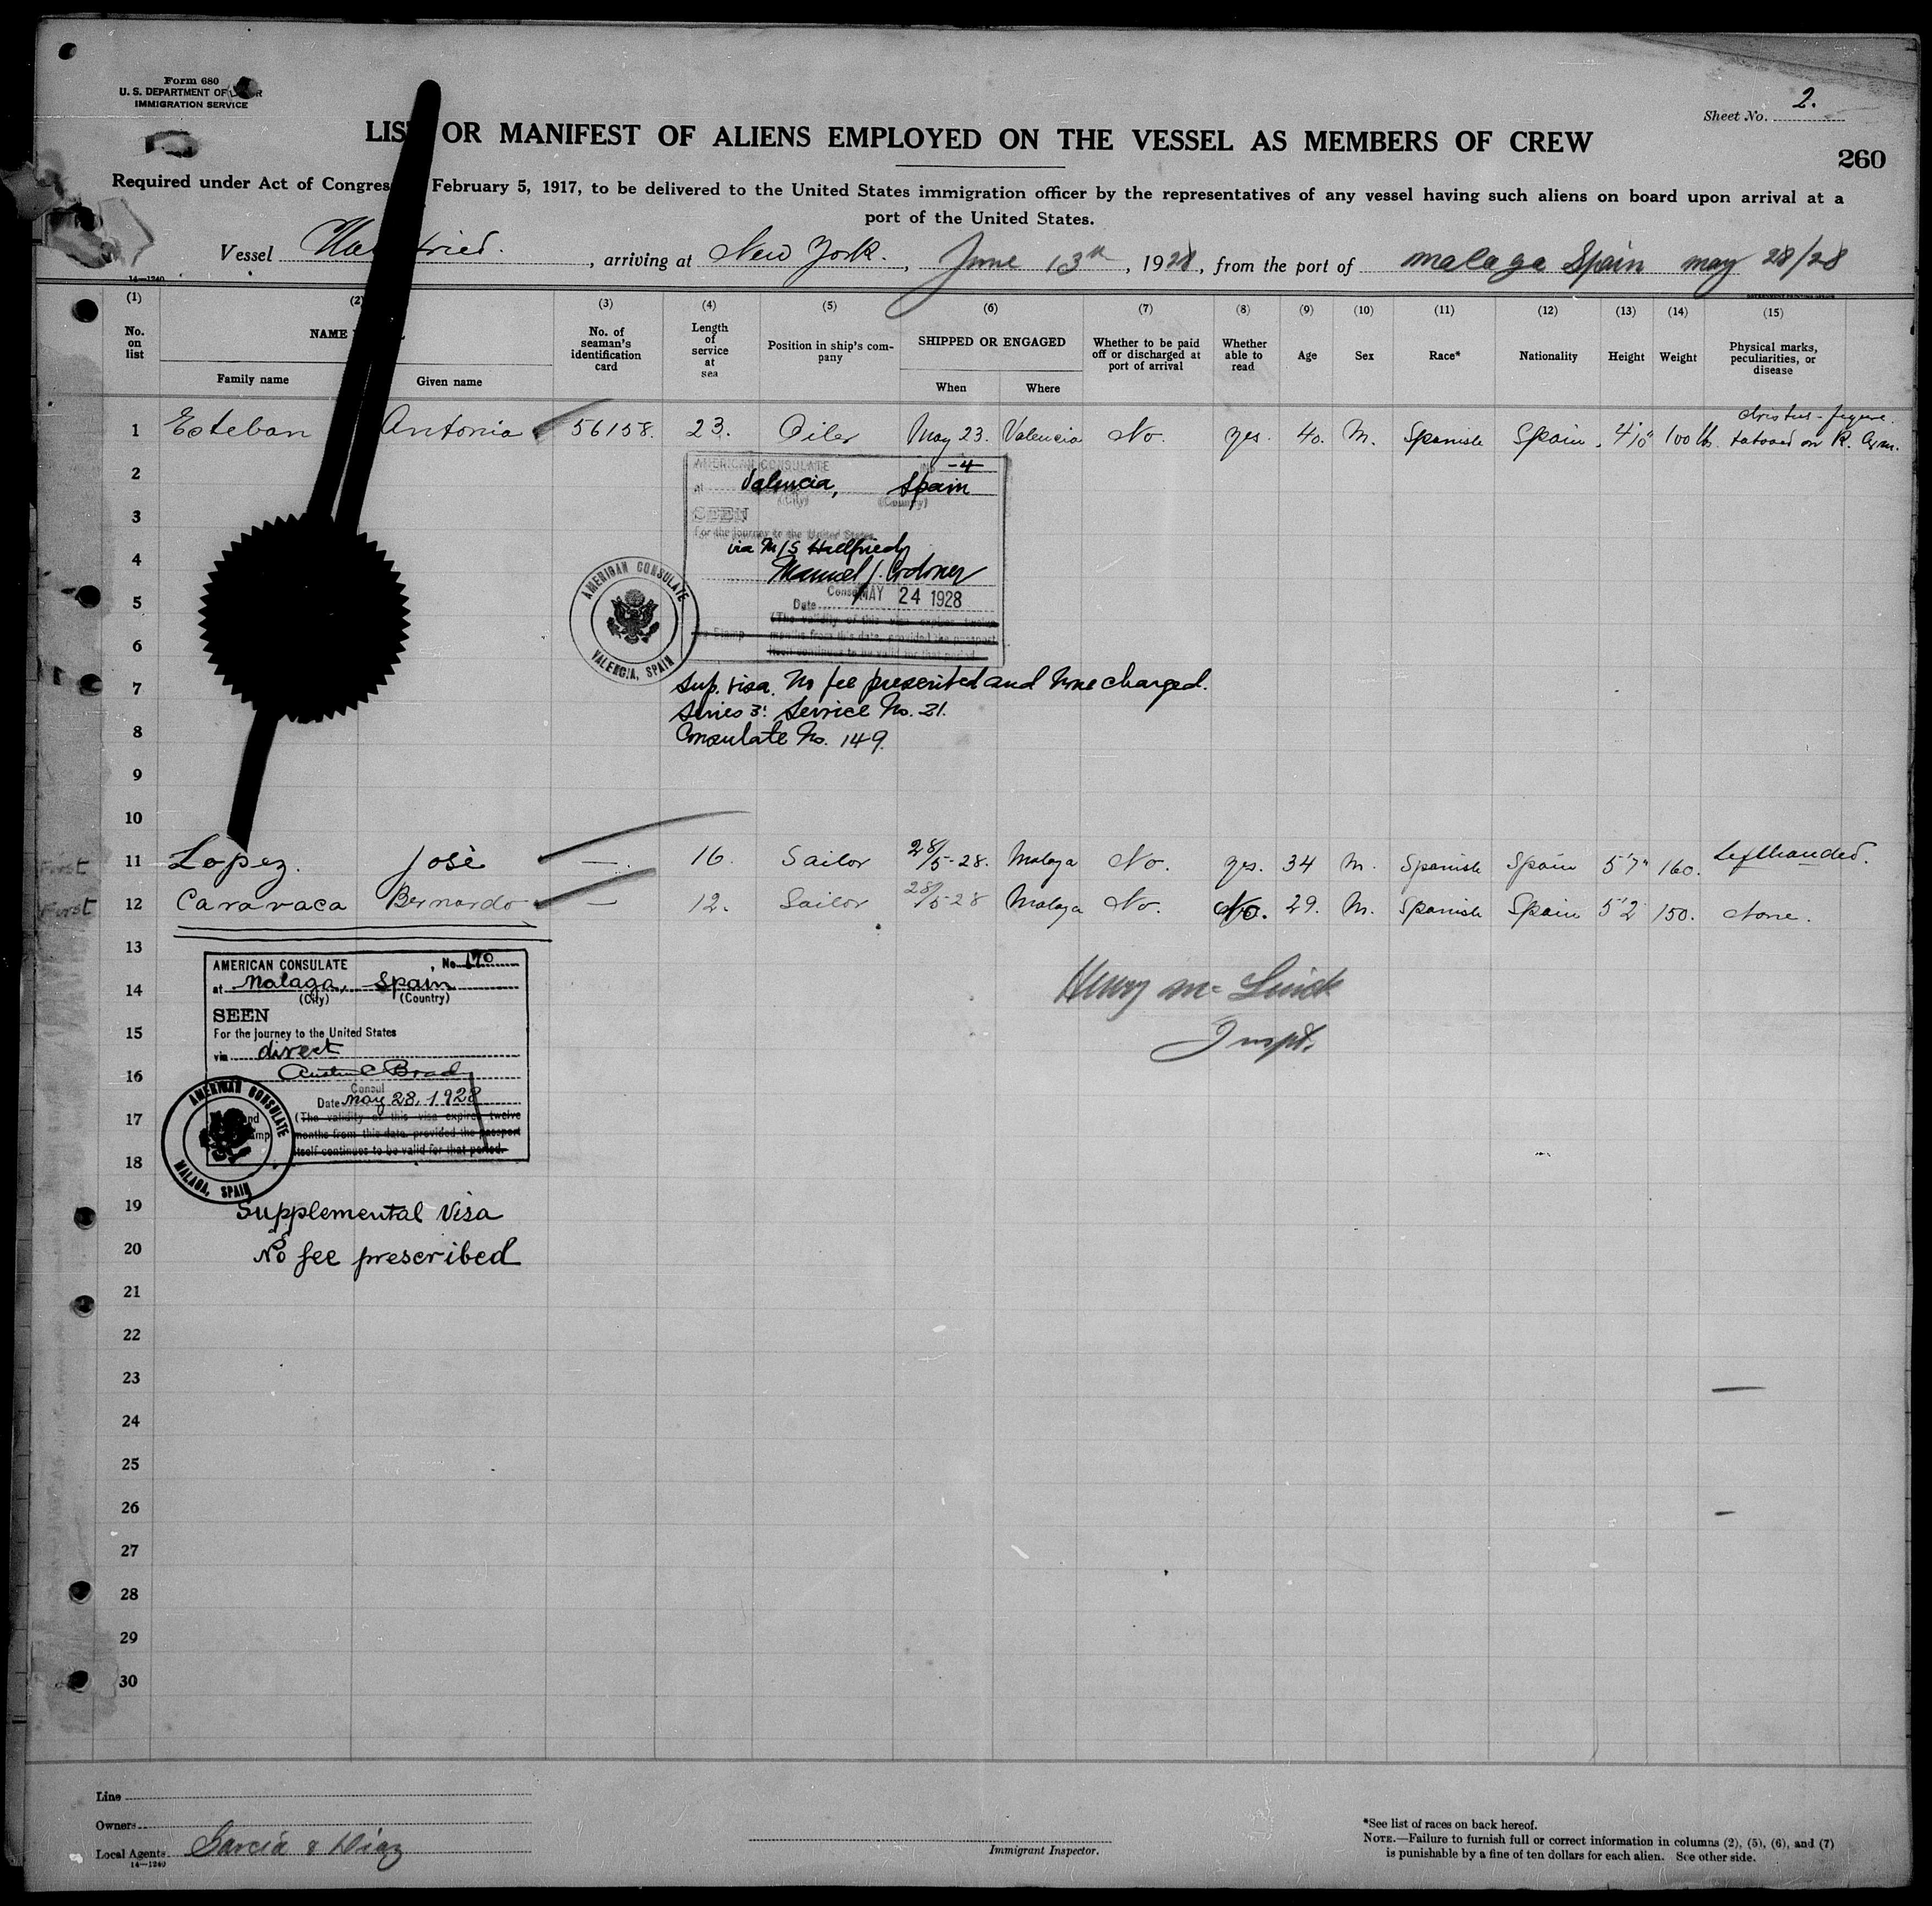 Form 680
U. S. DEPARTMENT OF
IMMIGRATION SERVICE
Sheet No. 2.
LIST OR MANIFEST OF ALIENS EMPLOYED ON THE VESSEL AS MEMBERS OF CREW
260
Required under Act of Congress February 5, 1917, to be delivered to the United States immigration officer by the representatives of any vessel having such aliens on board upon arrival at a
port of the United States.
Vessel , arriving at New York. , June 13th, 1928, from the port of Malaga Spain may 28/28
14—1240
(1) (2) (3) (4) (5) (6) (7) (8) (9) (10) (11) (12) (13) (14) (15)
No. on list
NAME
Family name
Given name
No. of seaman's identification card
Length of service at sea
Position in ship's company
SHIPPED OR ENGAGED
When
Where
Whether to be paid off or discharged at port of arrival
Whether able to read
Age
Sex
Race*
Nationality
Height
Weight
Physical marks, peculiarities, or disease
1 Esteban Antonio 56158. 23. Oiler May 23. Valencia No. yes. 40. M. Spanish Spain. 4'10" 100 lb. figure tatooed on R. Arm.
2
3
4
5
6
7
8
9
10
AMERICAN CONSULATE No -4
at Valencia, Spain
(City) (Country)
SEEN
For the journey to the United States
via M/S
Manuel J. Codoner
Consul
Date MAY 24 1928
(The validity of this visa expires twelve
months from this date, provided the passport
itself continues to be valid for that period.
AMERICAN CONSULATE
VALENCIA, SPAIN
Sup. visa. No fee prescribed and none charged.
Series 3: Service No. 21.
Consulate No. 149.
First 11 Lopez. José — 16. Sailor 28/5-28. Malaga No. yes. 34 M. Spanish Spain 5'7" 160. Lefthanded.
First 12 Caravaca Bernardo — 12. Sailor 28/5-28 Malaga No. No. 29. M. Spanish Spain 5'2 150. None.
13
14
15
16
17
18
AMERICAN CONSULATE, No. 170
at Malaga, Spain
(City) (Country)
SEEN
For the journey to the United States
via direct
Austin C Brady
Consul
Date May 28, 1928
(The validity of this visa expires twelve
months from this date, provided the passport
itself continues to be valid for that period.
AMERICAN CONSULATE
MALAGA, SPAIN
Henry
Inspt.
19
Supplemental Visa
20
No fee prescribed
21
22
23
24
25
26
27
28
29
30
Line
Owners
Local Agents Garcia & Diaz
14—1240
Immigrant Inspector.
*See list of races on back hereof.
NOTE.—Failure to furnish full or correct information in columns (2), (5), (6), and (7)
is punishable by a fine of ten dollars for each alien. See other side.